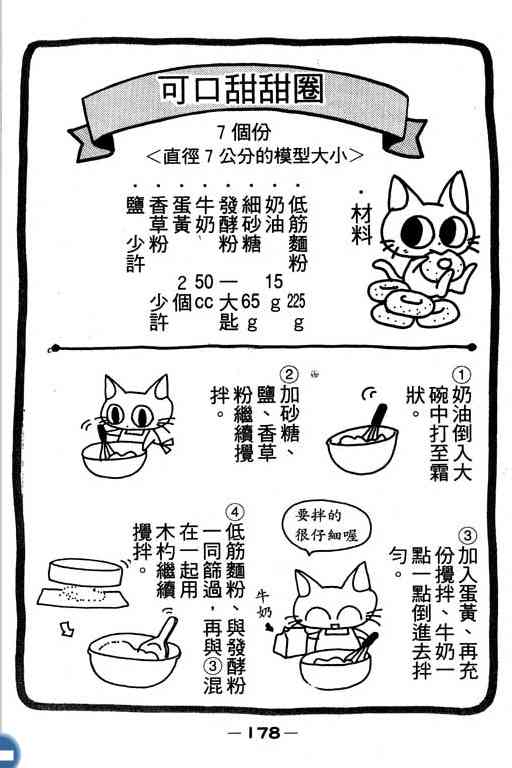 可口甜甜圈
7個份
＜直徑7公分的模型大小＞
・材料
・低筋麵粉 225g
・奶油 15g
・細砂糖 65g
・發酵粉 一大匙
・牛奶 50cc
・蛋黃 2個
・香草粉 少許
・鹽 少許
①奶油倒入大
碗中打至霜
狀。
②加砂糖、
鹽、香草
粉繼續攪
拌。
③加入蛋黃、再充
份攪拌、牛奶一
點一點倒進去拌
勻。
要拌的
很仔細喔
牛奶
④低筋麵粉、與發酵粉
一同篩過，再與③混
在一起用
木杓繼續
攪拌。
—178—